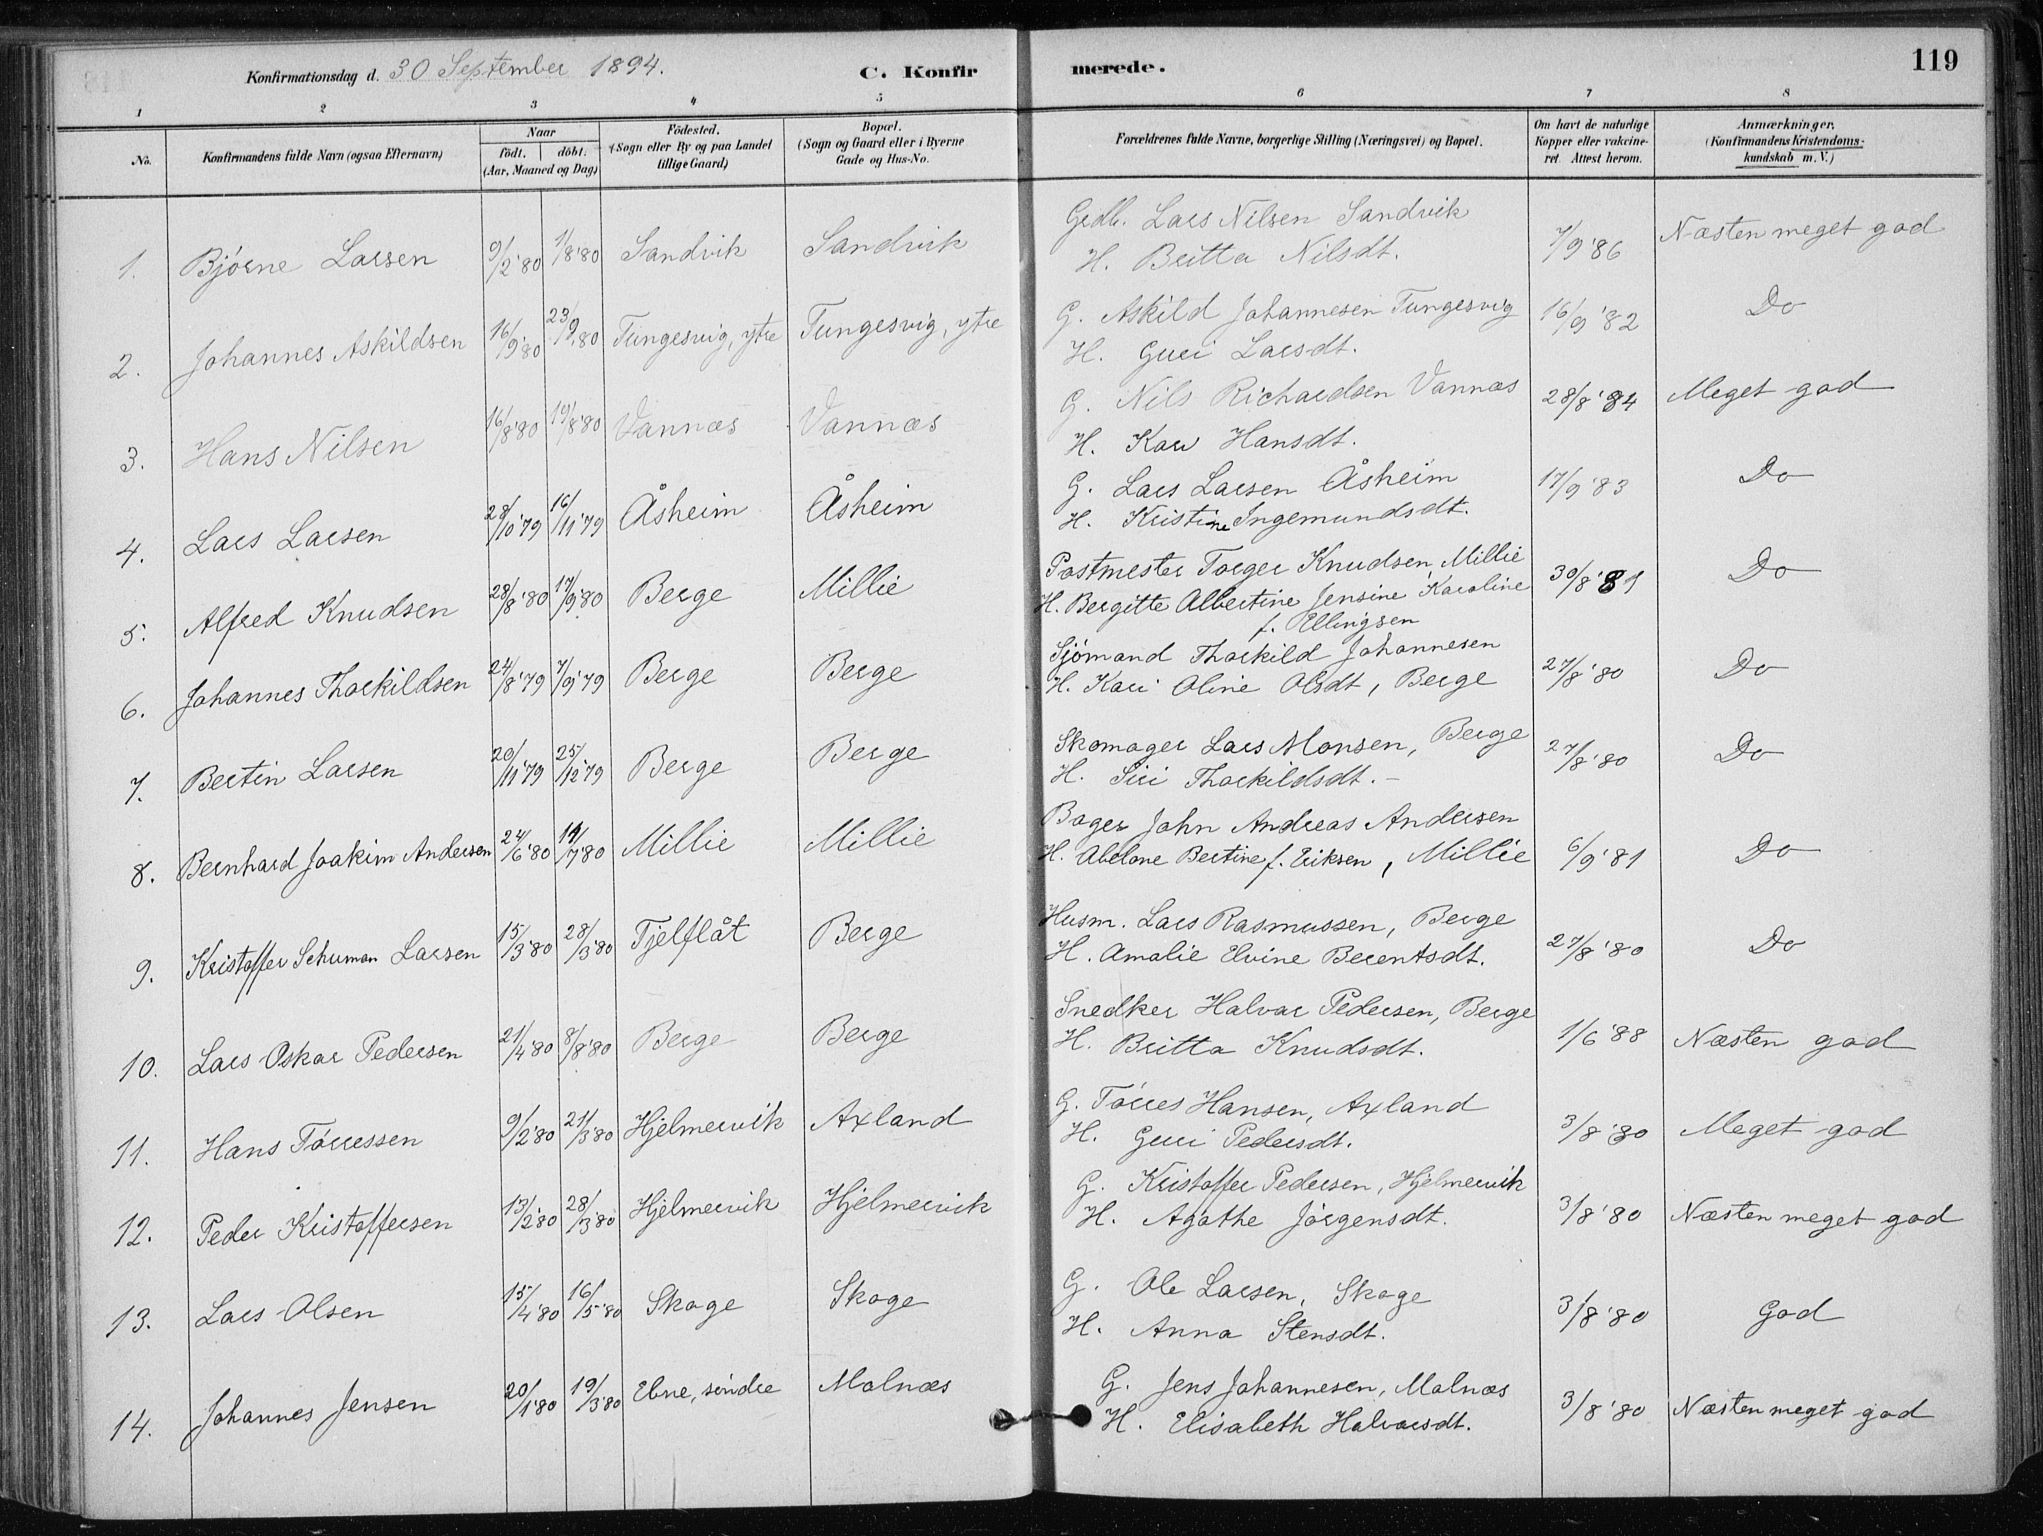 Konfirmationsdag d. 30 September 1894. C. Konfirmerede. 119
1 2 3 4 5 6 7 8
No. Konfirmandens fulde Navn (ogsaa Efternavn) Naar födt. döbt. (Aar, Maaned og Dag) Födested. (Sogn eller By og paa Landet tillige Gaard) Bopæl. (Sogn og Gaard eller i Byerne Gade og Hus-No. Forældrenes fulde Navne, borgerlige Stilling (Næringsvei) og Bopæl. Om havt de naturlige Kopper eller vakcineret. Attest herom. Anmærkninger. (Konfirmandens Kristendomskundskab m. V.)
1. Bjørne Larsen 9/2 '80 1/8 '80 Sandvik Sandvik Grdb. Lars Nilsen Sandvik 7/9 '86 Næsten meget god
H. Britta Nilsdt.
2. Johannes Askildsen 16/9 '80 23/9 80 Tungesvig, ytre Tungesvig, ytre G. Askild Johannesen Tungesvig 16/9 '82 Do
H. Guri Larsdt.
3. Hans Nilsen 16/8 '80 19/8 '80 Vannæs Vannæs G. Nils Richardsen Vannæs 28/8 '84 Meget god
H. Kari Hansdt.
4. Lars Larsen 28/10 '79 16/11 '79 Åsheim Åsheim G. Lars Larsen Åsheim 17/9 '83 Do
H. Kristine Ingemundsdt.
5. Alfred Knudsen 28/8 '80 17/9 '80 Berge Millie Postmester Torger Knudsen, Millie 30/8 '81 Do
H. Bergitte Albertine Jensine Karoline
f. Ellingsen
6. Johannes Thorkildsen 24/8 '79 7/9 '79 Berge Berge Sjömand Thorkild Johannesen 27/8 '80 Do
H. Kari Oline Olsdt, Berge
7. Bertin Larsen 20/11 '79 25/12 '79 Berge Berge Skomager Lars Monsen, Berge 27/8 '80 Do
H. Siri Thorkildsdt. -
8. Bernhard Joakim Andersen 24/6 '80 11/7 '80 Millie Millie Bager John Andreas Andersen 6/9 '81 Do
H. Abelone Bertine f. Eriksen, Millie
9. Kristoffer Schuman Larsen 15/3 '80 28/3 '80 Tjelflåt Berge Husm. Lars Rasmussen, Berge 27/8 '80 Do
H. Amalie Elvine Berentsdt.
10. Lars Oskar Pedersen 21/4 '80 8/8 '80 Berge Berge Snedker Halvar Pedersen, Berge 1/6 '88 Næsten god
H. Britta Knudsdt.
11. Hans Tørressen 9/2 '80 21/3 '80 Hjelmervik Axland G. Tørres Hansen, Axland 3/8 '80 Meget god
H. Guri Pedersdt.
12. Peder Kristoffersen 13/2 '80 28/3 '80 Hjelmervik Hjelmervik G. Kristoffer Pedersen, Hjelmervik 3/8 '80 Næsten meget god
H. Agathe Jørgensdt.
13. Lars Olsen 15/4 '80 16/5 '80 Skoge Skoge G. Ole Larsen, Skoge 3/8 '80 God
H. Anna Stensdt.
14. Johannes Jensen 20/1 '80 19/3 '80 Ebne, søndre Molnæs G. Jens Johannesen, Molnæs 3/8 '80 Næsten meget god
H. Elisabeth Halvarsdt.